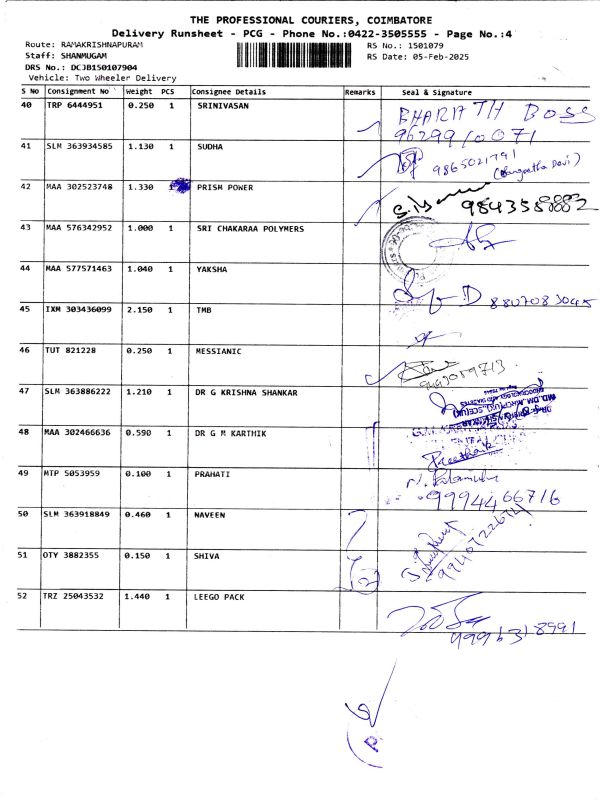 THE PROFESSIONAL COURIERS, COIMBATORE
Delivery Runsheet - PCG - Phone No.:0422-3505555 - Page No.:4
Route: RAMAKRISHNAPURAM RS No.: 1501079
Staff: SHANMUGAM RS Date: 05-Feb-2025
DRS No.: DCJB150107904
Vehicle: Two Wheeler Delivery
S No Consignment No Weight PCS Consignee Details Remarks Seal & Signature
40 TRP 6444951 0.250 1 SRINIVASAN BHARATH BOSS
9629910071
41 SLM 363934585 1.130 1 SUDHA 9865021791
42 MAA 302523748 1.330 1 PRISM POWER
43 MAA 576342952 1.000 1 SRI CHAKARAA POLYMERS
44 MAA 577571463 1.040 1 YAKSHA
8807083045
45 IXM 303436099 2.150 1 TMB
46 TUT 821228 0.250 1 MESSIANIC
47 SLM 363886222 1.210 1 DR G KRISHNA SHANKAR
48 MAA 302466636 0.590 1 DR G M KARTHIK
49 MTP 5053959 0.100 1 PRAHATI
9994466716
50 SLM 363918849 0.460 1 NAVEEN
51 OTY 3882355 0.150 1 SHIVA
52 TRZ 25043532 1.440 1 LEEGO PACK